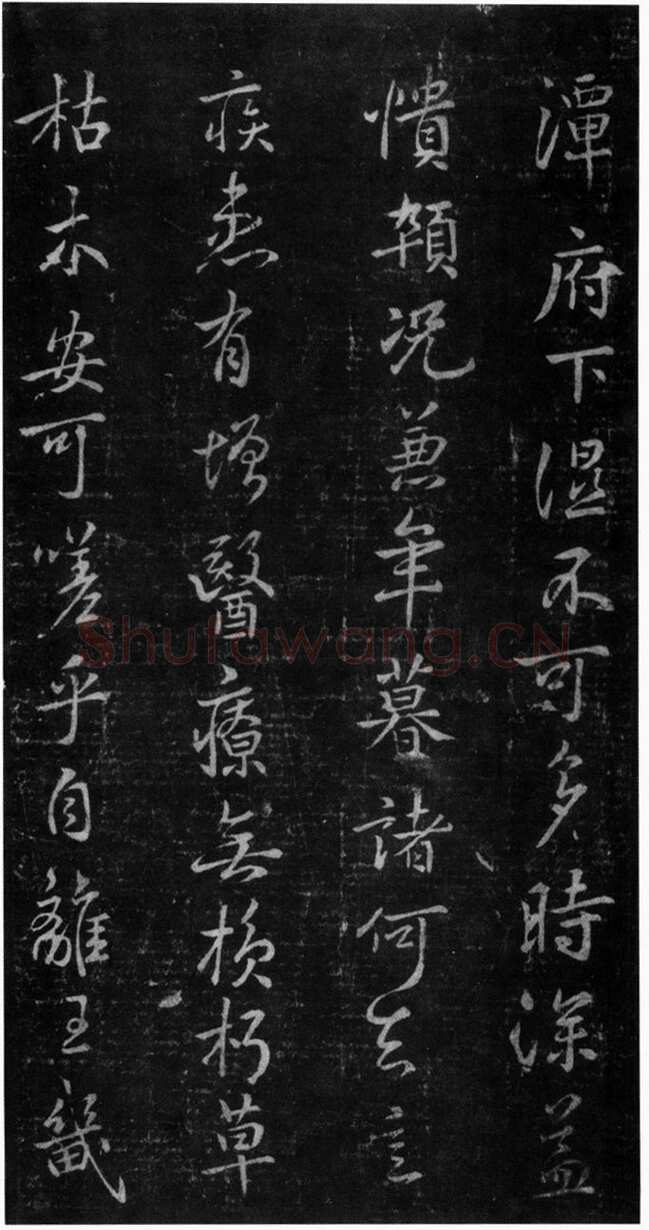 潭府下濕不可多時深益
憒頓況兼年暮諸何足言
疾患有增醫療無損朽草
枯木安可嗟乎自離王畿
Shufawang.CN